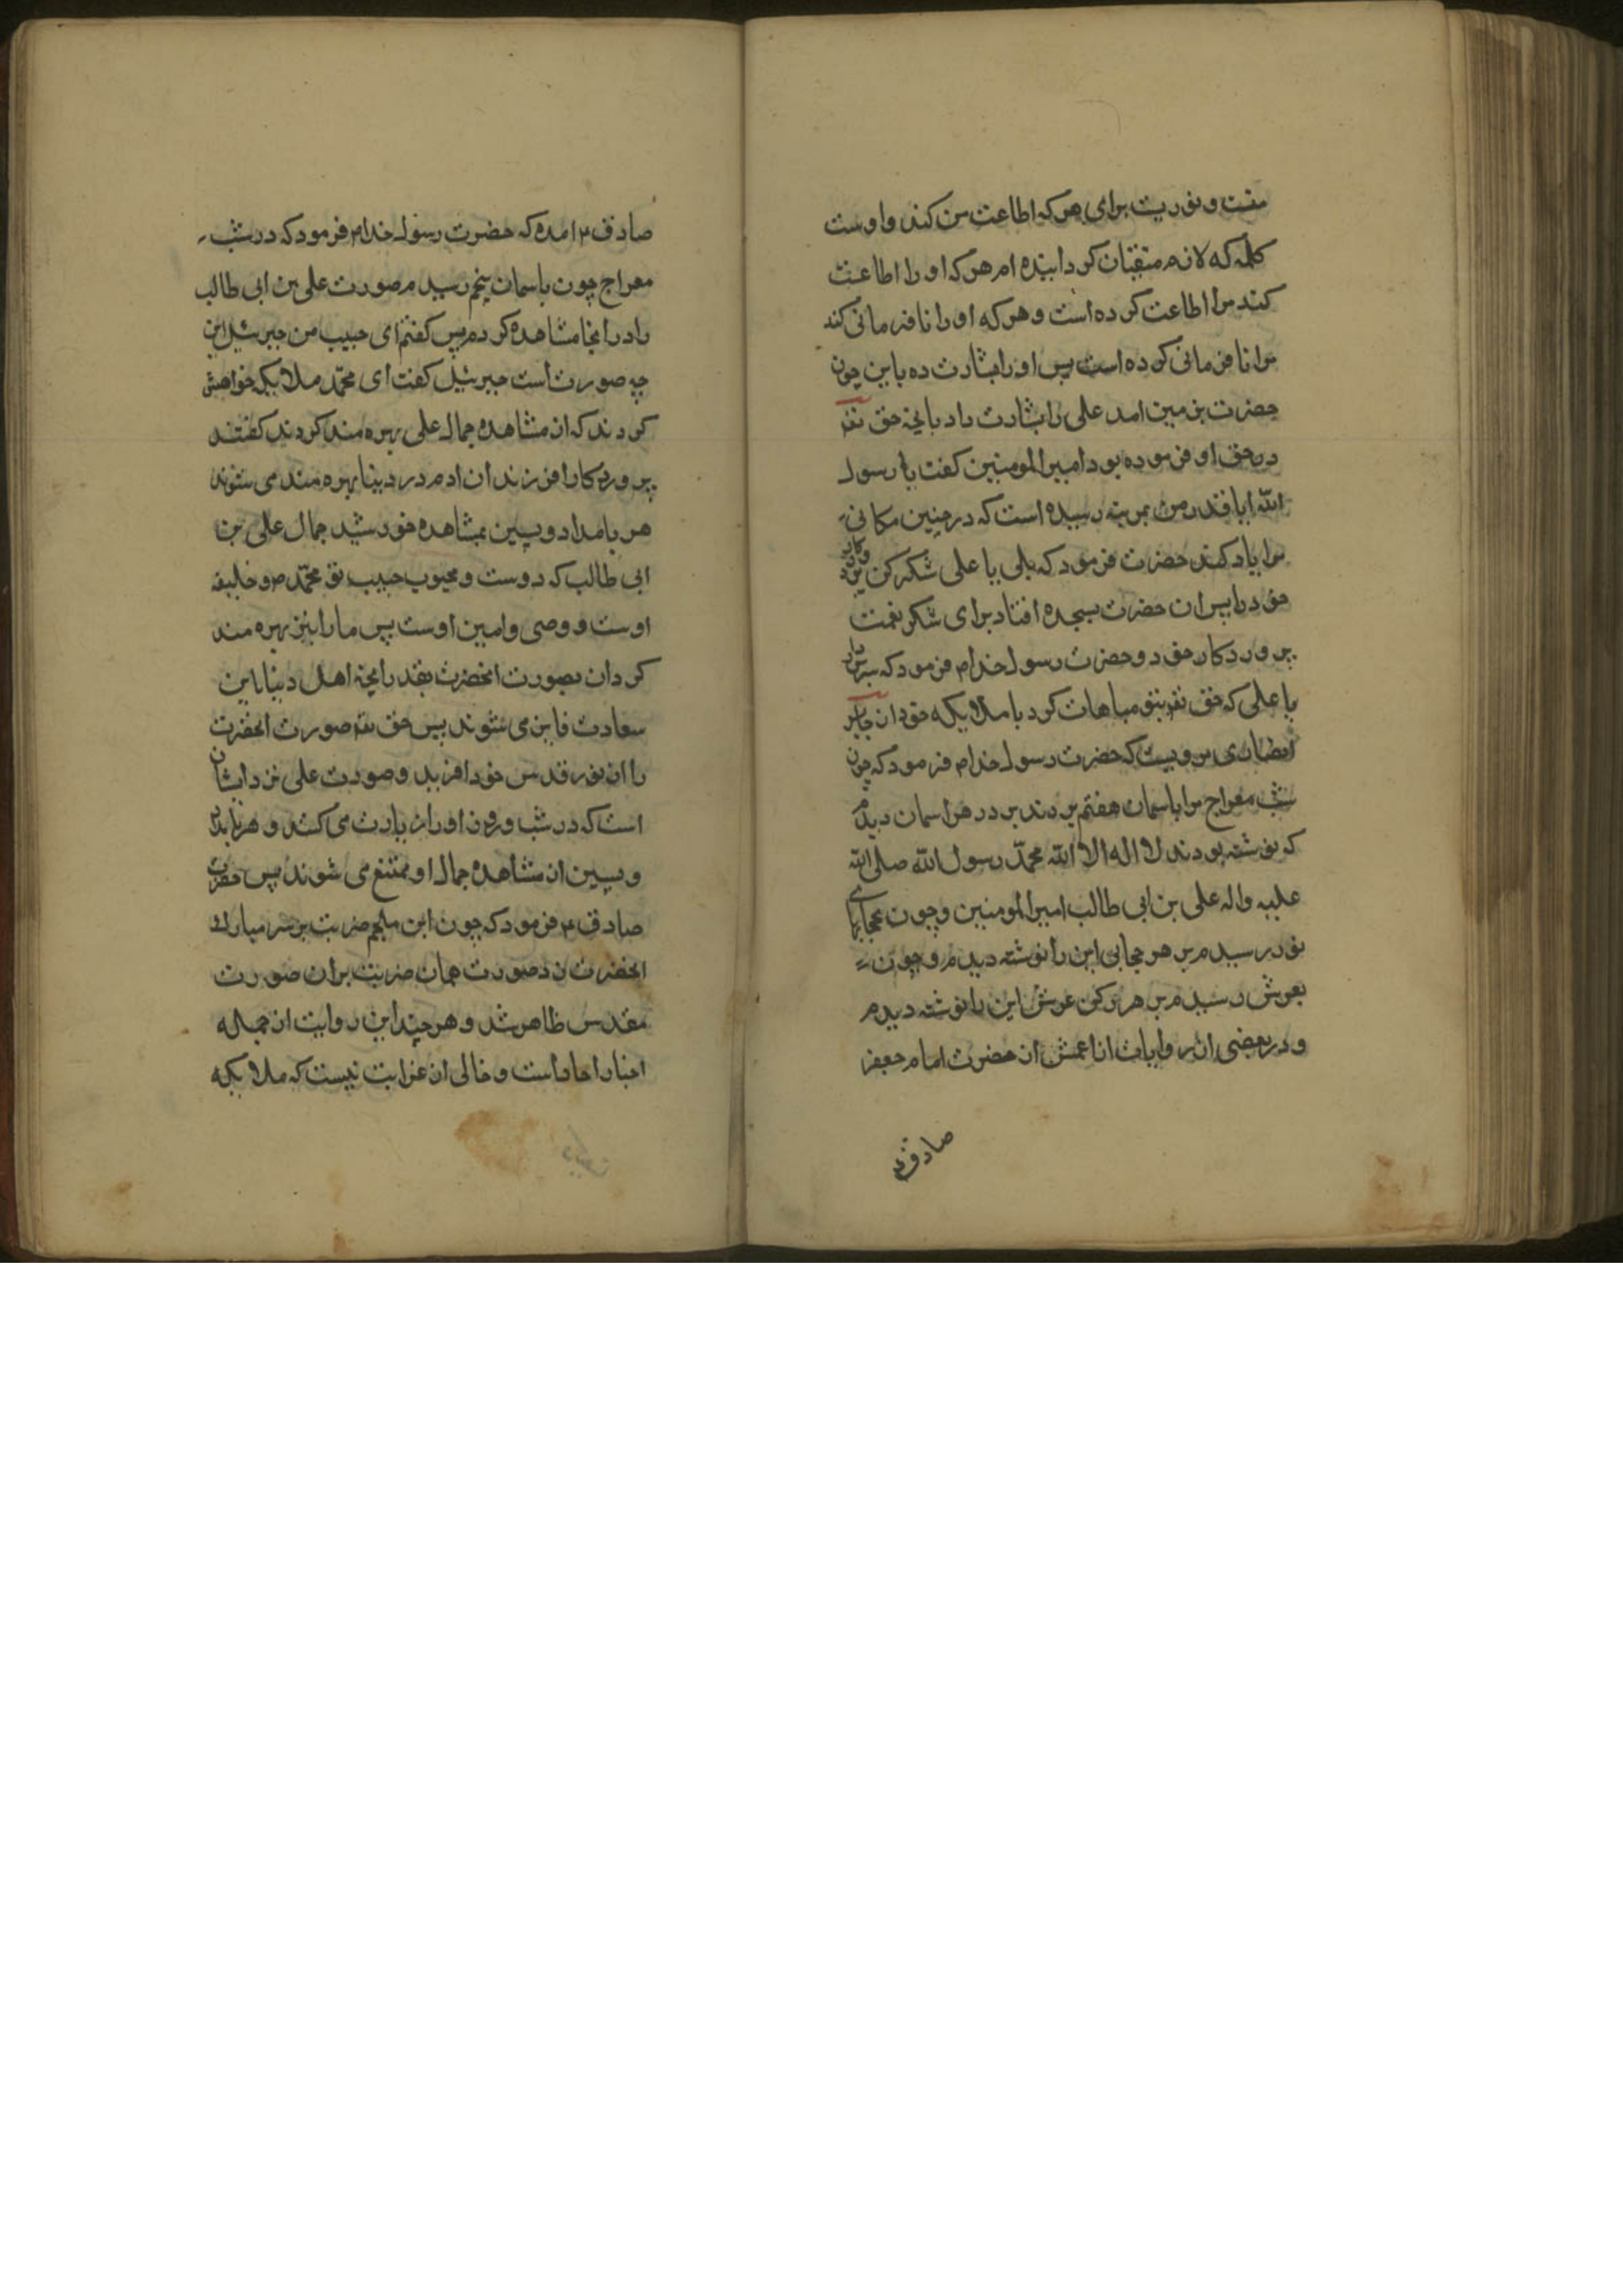 منست و نوریست برای هر که اطاعت من کند و اوست
کلمه که لازم متقیان کردانیده ام هر که او را اطاعت
کند مرا اطاعت کرده است و هر که او را نافرمانی کند
مرا نافرمانی کرده است پس او را بشارت ده باین چون
حضرت بزمین امد علی را بشارت داد بانچه حق تعه
در حق او فرموده بود امیرالمومنین کفت یا رسول
الله ایا قدر من بمرتبه رسیده است که در چنین مکانی
مرا یاد کنند حضرت فرمود که بلی یا علی شکر کن پروردکار
خود را پس ان حضرت بسجده افتاد برای شکر نعمت
پروردکار خود و حضرت رسول خدا م فرمود که سر بردار
یا علی که حق تعه بتو مباهات کرد با ملایکه خود از جابر
انصاری مرویست که حضرت رسول خدا م فرمود که چون
شب معراج مرا باسمان هفتم بردند بر در هر اسمان دیدم
که نوشته بودند لا اله الا الله محمد رسول الله صلی الله
علیه واله علی بن ابی طالب امیرالمومنین و چون بحجابهای
نور رسیدم بر هر حجابی این را نوشته دیدم و چون
بعرش رسیدم بر هر رکن عرش این را نوشته دیدم
و در بعضی از روایات از اعمش از حضرت امام جعفر
صادق ع
صادق ع امده که حضرت رسول خدا م فرمود که در شب
معراج چون باسمان پنجم رسیدم صورت علی بن ابی طالب
را در انجا مشاهده کردم پس کفتم ای حبیب من جبرئیل این
چه صورت است جبرئیل کفت ای محمد ملایکه خواهش
کردند که از مشاهده جمال علی بهره مند کردند کفتند
پروردکارا فرزندان ادم در دنیا بهره مند می شوند
هر بامداد و پسین بمشاهده خورشید جمال علی بن
ابی طالب که دوست و محبوب حبیب تو محمد م و خلیفه
اوست و وصی و امین اوست پس ما را نیز بهره مند
کردان بصورت انحضرت بقدر انچه اهل دنیا باین
سعادت فایز می شوند پس حق تعه صورت انحضرت
را از نور قدس خود افرید و صورت علی نزد ایشان
است که در شب و روز او را زیارت می کنند و هر بامداد
و پسین از مشاهده جمال او متمتع می شوند پس حضرت
صادق ع فرمود که چون ابن ملجم ضربت بر سر مبارک
انحضرت زد صورت همان ضربت بران صورت
مقدس ظاهر شد و هر چند این روایت از جمله
اخبار احاد است و خالی از غرابت نیست که ملایکه